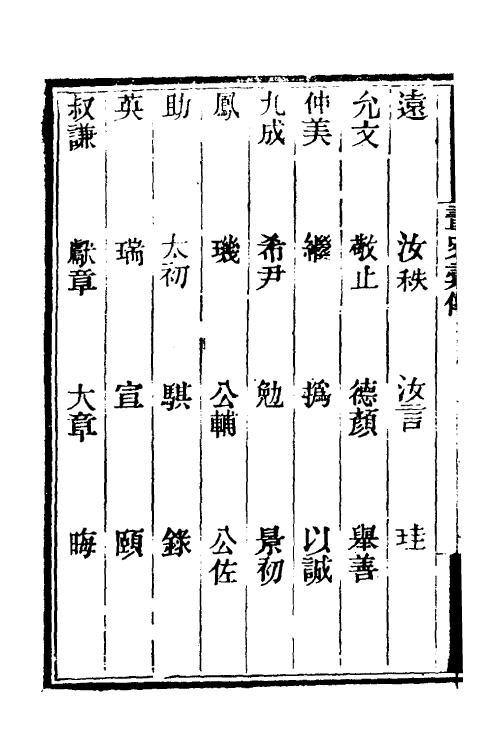 遠 汝秩 汝言 珪
允文 敬止 德顏 舉善
仲美 繼 撝 以誠
九成 希尹 勉 景初
鳳 璣 公輔 公佐
助 太初 騏 錄
英 瑞 宣 頤
叔謙 獻章 大章 晦